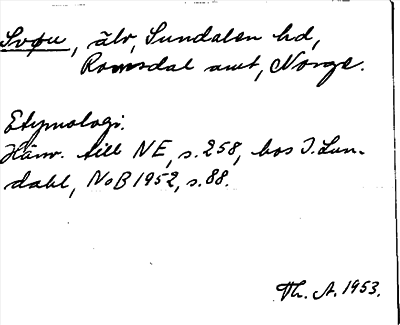 Svøu, älv, Sundalen hd,
Romsdal amt, Norge.
Etymologi.
Hänv. till NE, s. 258, hos I. Lun-
dahl, NoB 1952, s. 88.
Th. A. 1953.